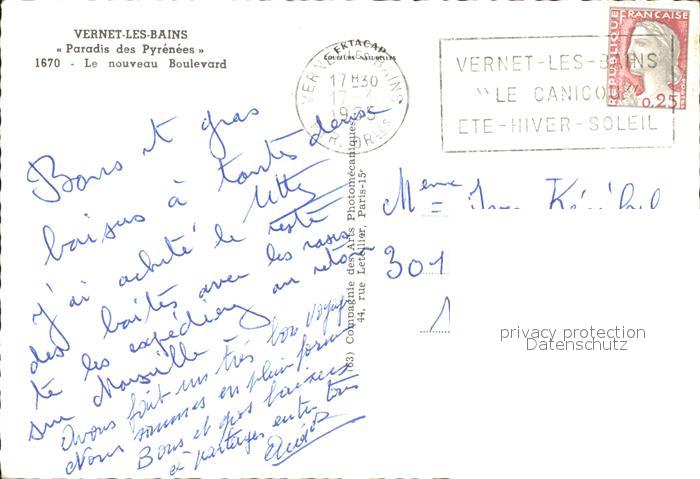 VERNET-LES-BAINS
« Paradis des Pyrénées »
1670 - Le nouveau Boulevard
EKTACAP
COULEURS NATURELLES
VERNET-LES-BAINS
17H30
1965
VERNET-LES-BAINS
"LE CANIGOU"
ETE-HIVER-SOLEIL
REPUBLIQUE FRANÇAISE
0,25
Bons et gros
baisers à toutes
j'ai acheté le reste
des boîtes avec les
te les expédier au retour
sur Marseille
Avons fait un très bon voyage
Nous sommes en pleine forme
Bons et gros baisers
à partager entre tous
Mme
301
1
(63) Compagnie des Arts Photomécaniques
44, rue Letellier, Paris-15e
privacy protection
Datenschutz